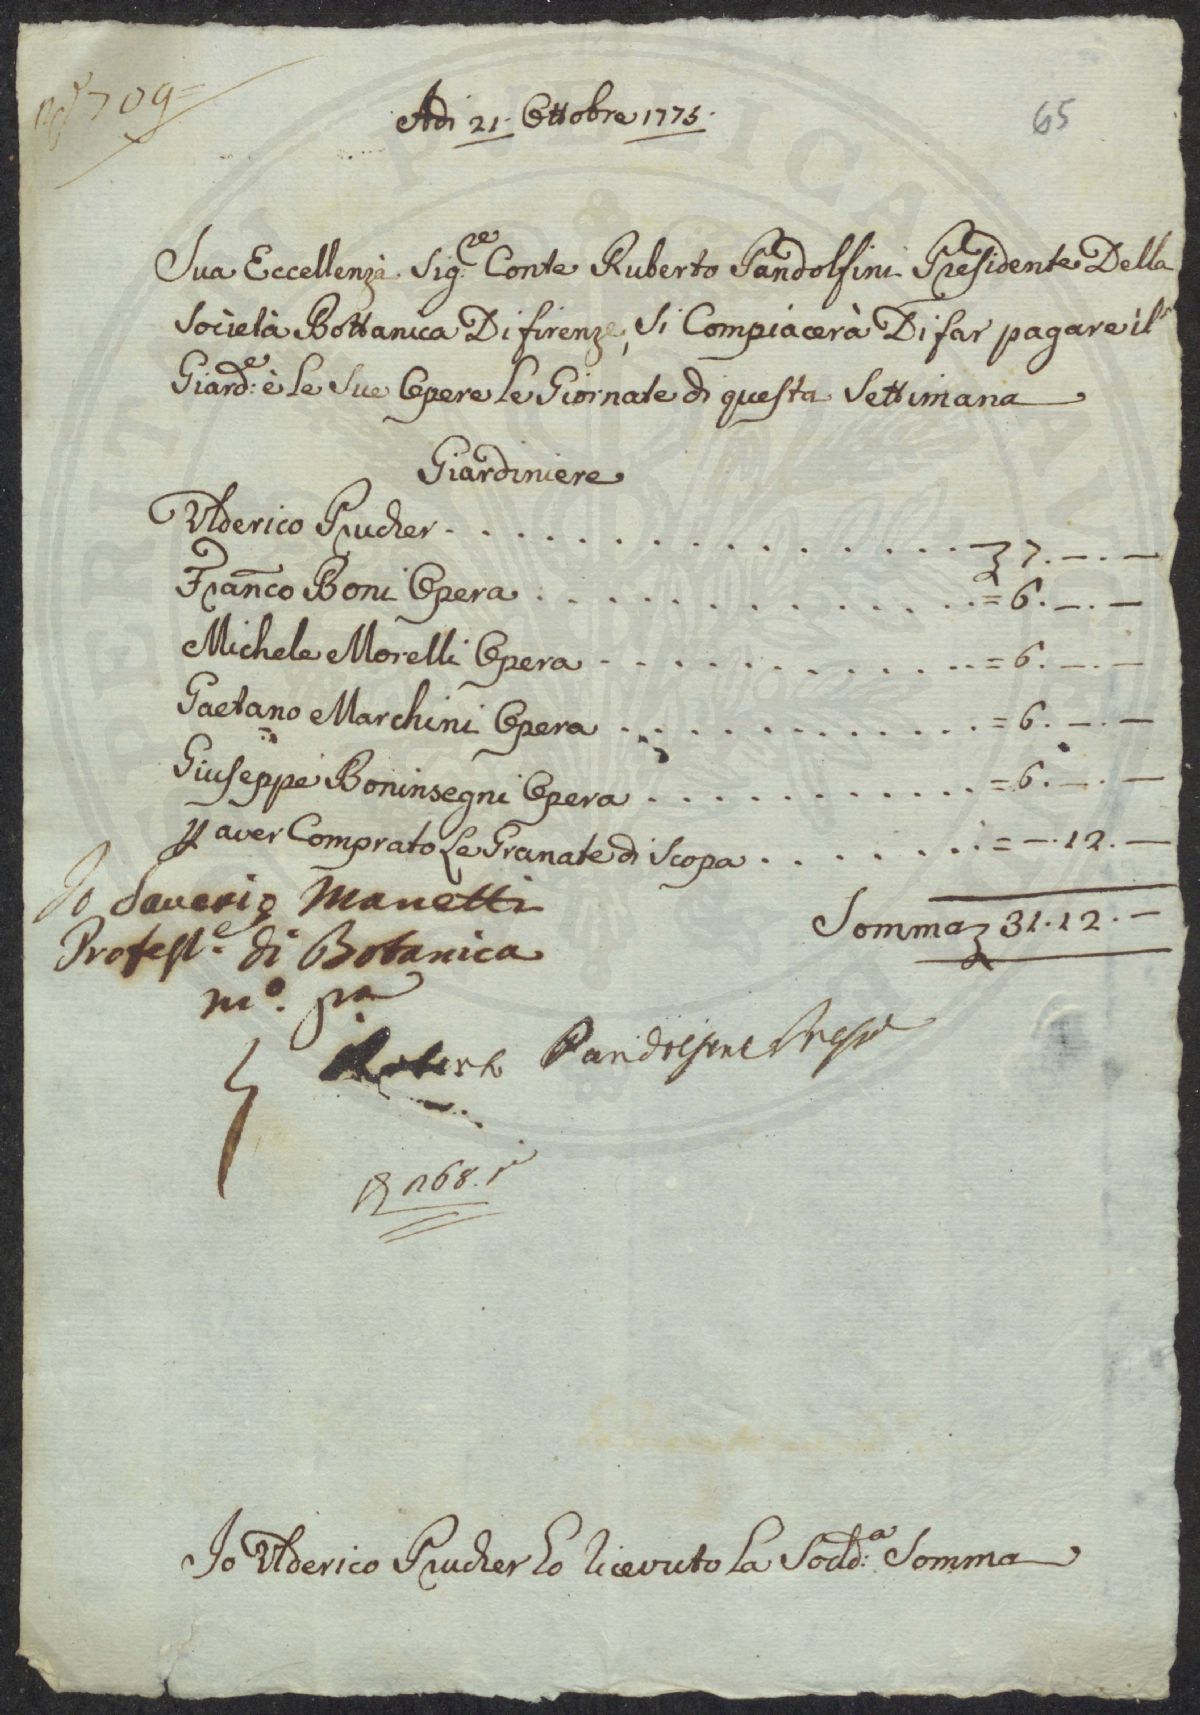 709
Adi 21. Ottobre 1775.
65
Sua Eccellenza Sig.re Conte Ruberto Pandolfini Presidente Della
Società Bottanica Di firenze, Si Compiacerà Di far pagare il
Giard.e è le Sue Opere le Giornate di questa Settimana
Giardiniere
Ulderico Prucher . . . . . . . . . . . . . . . 7. —. —
Fran̄co Boni Opera . . . . . . . . . . . . . = 6. —. —
Michele Morelli Opera . . . . . . . . . . . = 6. —. —
Gaetano Marchini Opera . . . . . . . . . . . = 6. —. —
Giuseppe Boninsegni Opera . . . . . . . . . . = 6. —. —
aver Comprato Le Granate di Scopa . . . . . . . = —. 12. —
Somma 31. 12. —
Io Saverio Manetti
Profess.e di Botanica
m.o p.a
Pandolfini Presid
168.
Io Ulderico Prucher ho ricevuto La Sodd.a Somma